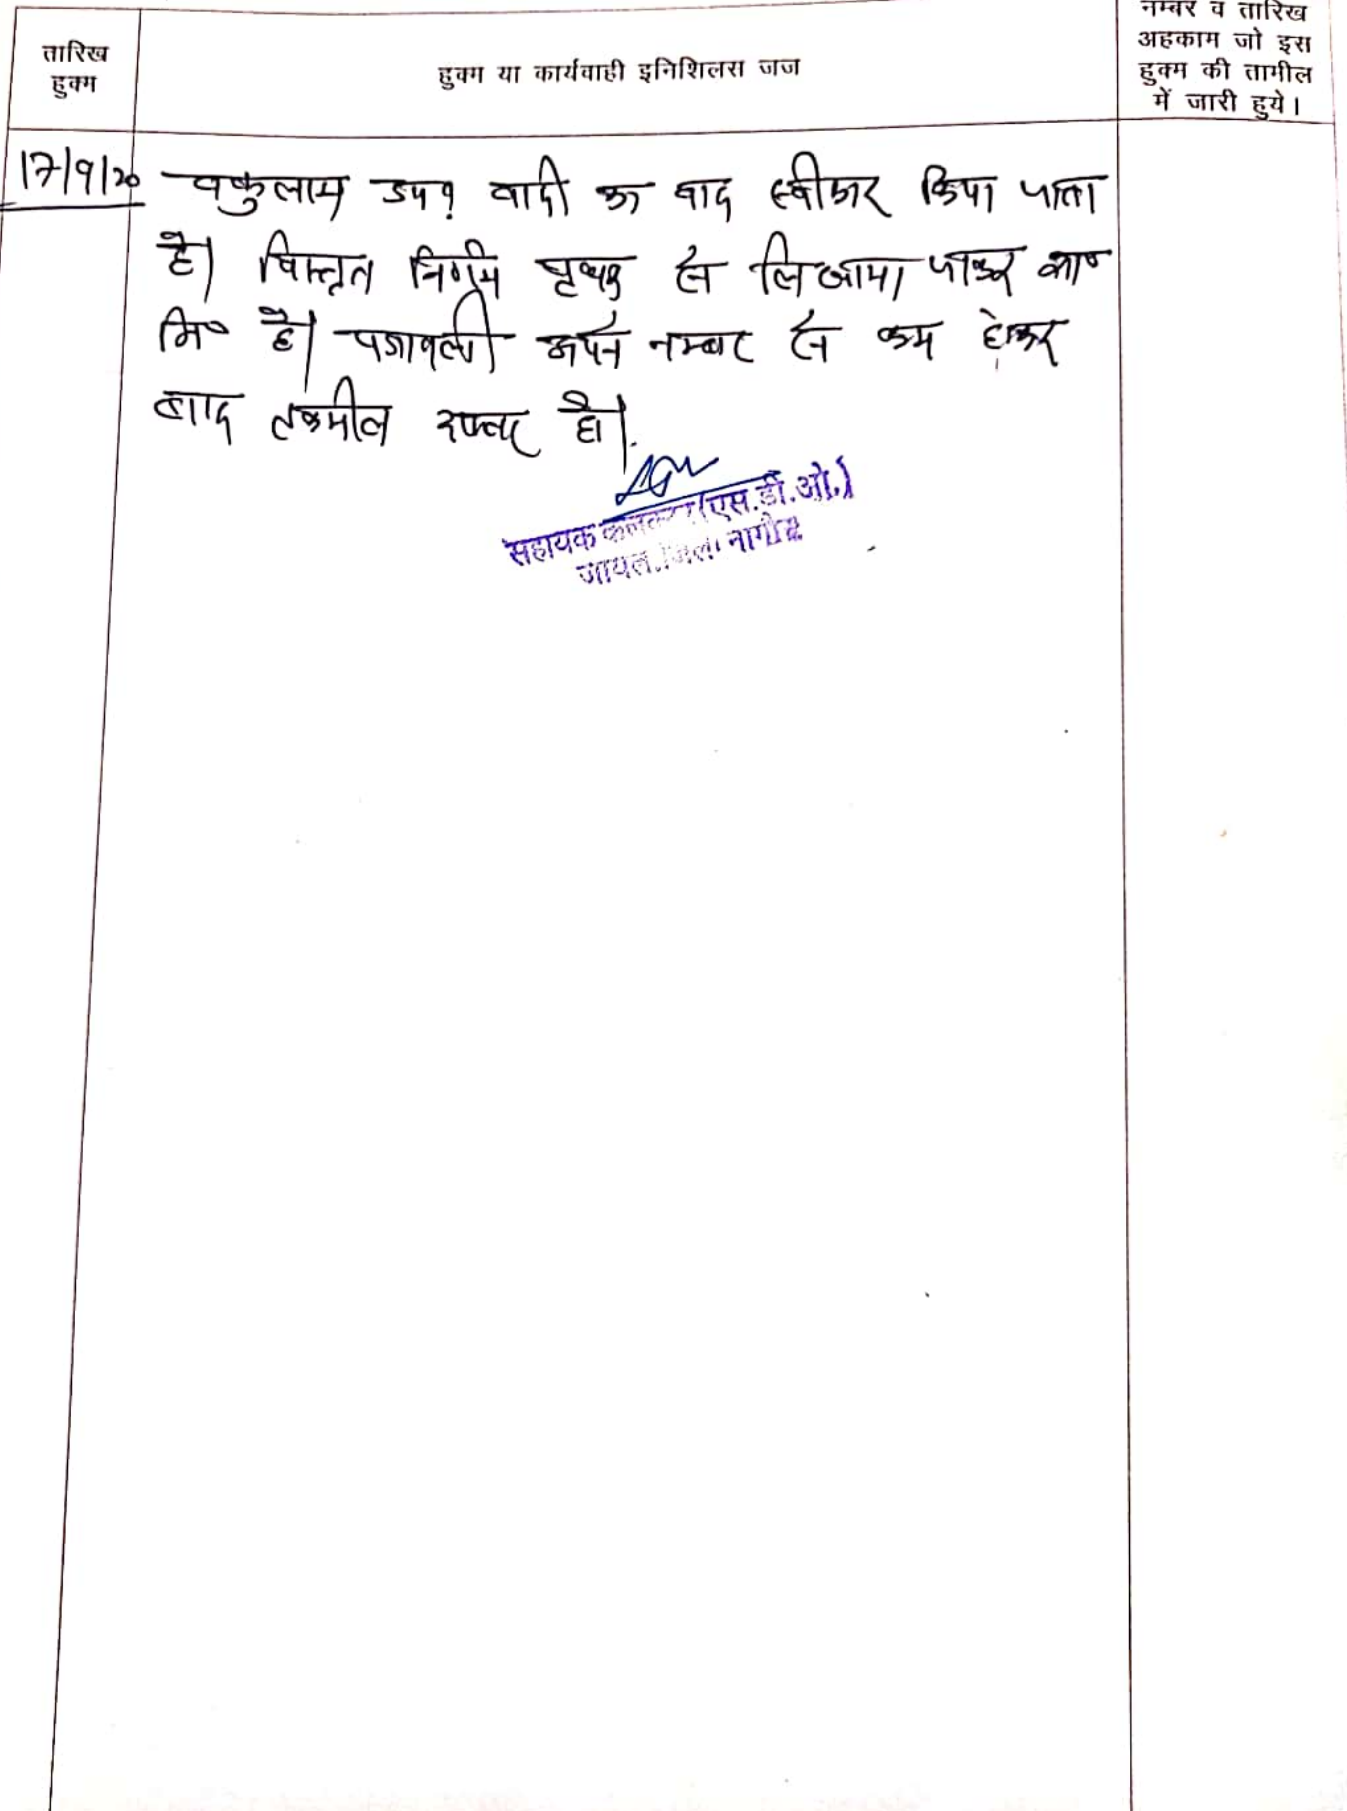 तारिख
हुक्म
हुक्म या कार्यवाही इनिशिलस जज
नम्बर व तारिख
अहकाम जो इस
हुक्म की तामील
में जारी हुये।
17/9/20
वकुलाय उप० वादी का वाद स्वीकार किया जाता
है। विस्तृत निर्णय पृथक से लिखाया जाकर शा०
मि० है। पत्रावली अपने नम्बर से कम होकर
बाद तकमील दफ्तर हो।
सहायक कलक्टर (एस.डी.ओ.)
जायल, जिला नागौर